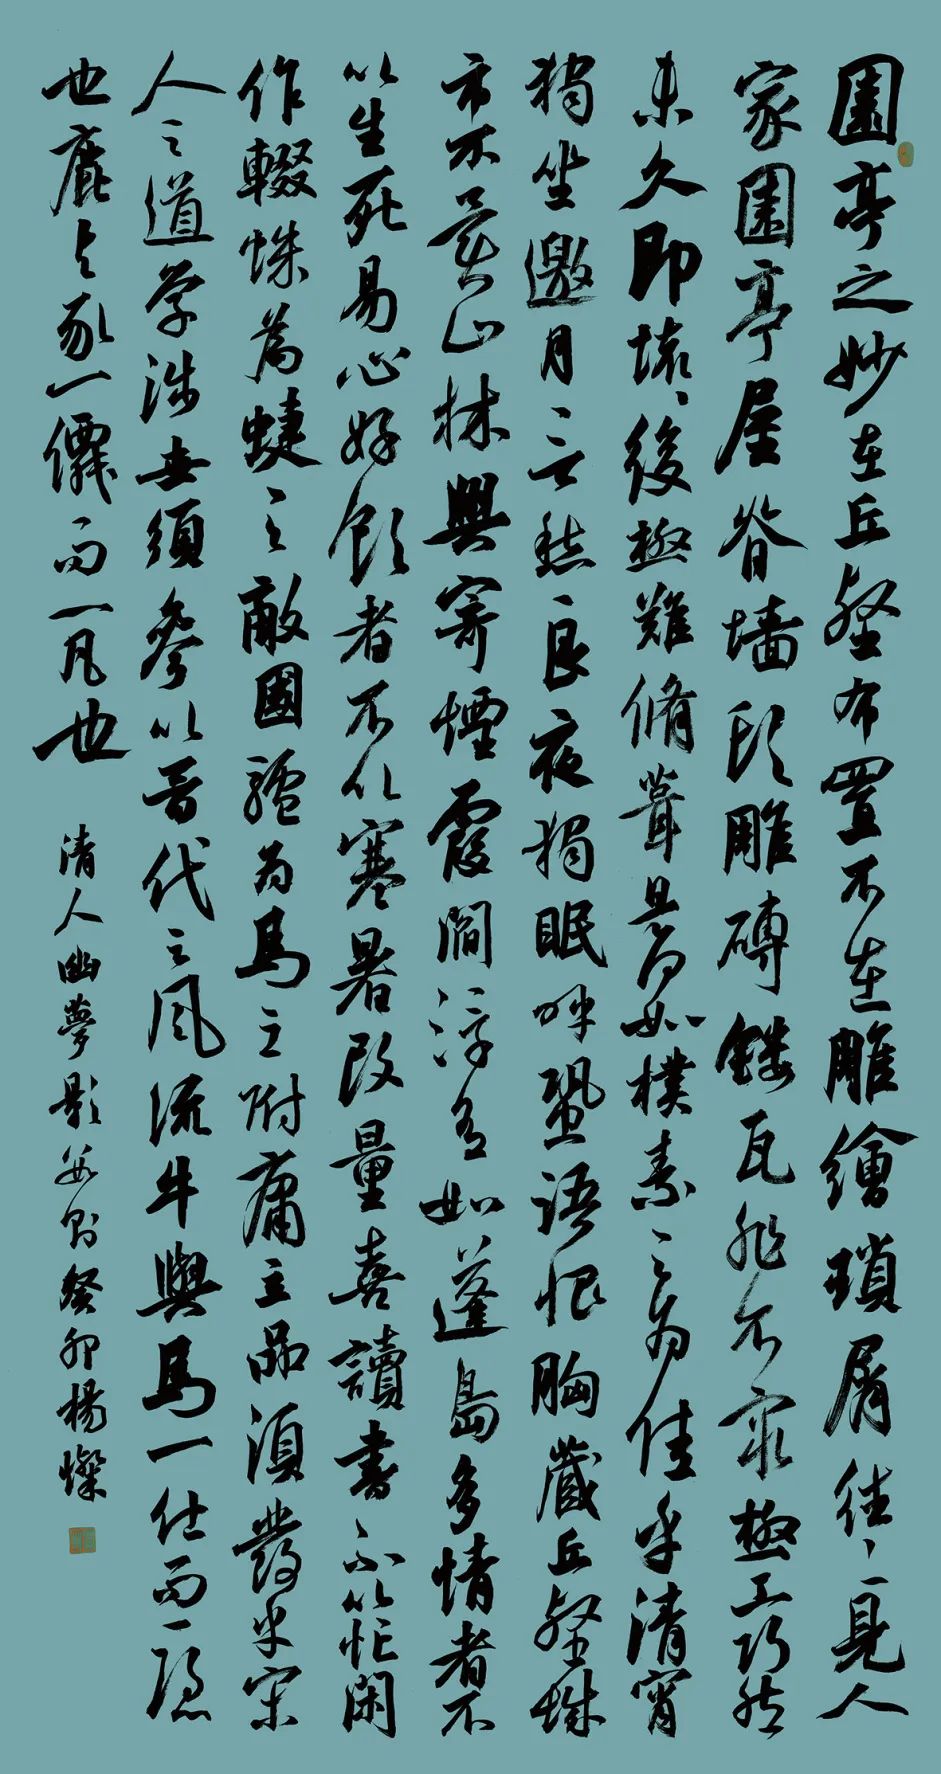 園亭之妙在丘壑布置不在雕繪瑣屑往々見人
家園亭屋脊墻頭雕磚鏤瓦非不窮極工巧然
未久即壞々後極難脩葺是何如樸素之為佳乎清宵
獨坐邀月言愁良夜獨眠呼蛩語恨胸藏丘壑城
市不異山林興寄煙霞閻浮有如蓬島多情者不
以生死易心好飲者不以寒暑改量喜讀書不以忙閑
作輟蛛為蜨之敵國驢為馬之附庸立品須發乎宋
人之道學涉世須參以晉代之風流牛與馬一仕而一隱
也鹿與豕一僊而一凡也
清人幽夢影數則癸卯楊燦